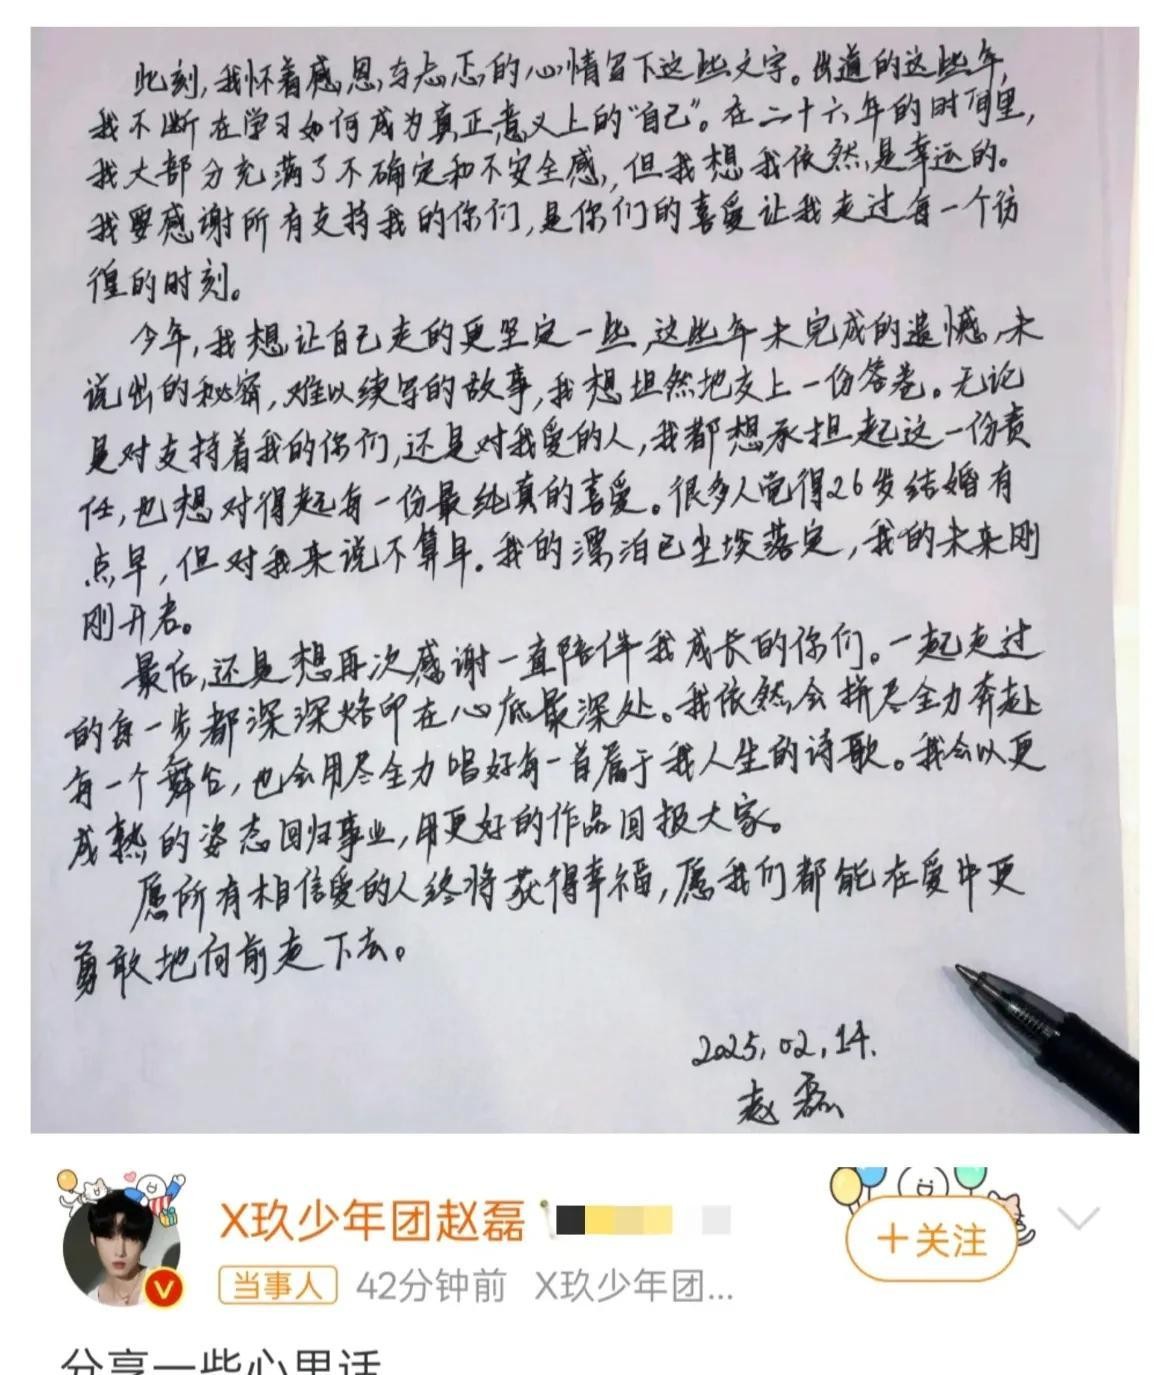 此刻,我怀着感恩与忐忑的心情留下这些文字。出道的这些年,
我不断在学习如何成为真正意义上的"自己"。在二十六年的时间里,
我大部分充满了不确定和不安全感,但我想我依然是幸运的。
我要感谢所有支持我的你们,是你们的喜爱让我走过每一个彷
徨的时刻。
今年,我想让自己走的更坚定一些,这些年未完成的遗憾,未
说出的秘密,难以续写的故事,我想坦然地交上一份答卷。无论
是对支持着我的你们,还是对我爱的人,我都想承担起这一份责
任,也想对得起每一份最纯真的喜爱。很多人觉得26岁结婚有
点早,但对我来说不算早。我的漂泊已尘埃落定,我的未来刚
刚开启。
最后,还是想再次感谢一直陪伴我成长的你们。一起走过
的每一步都深深烙印在心底最深处。我依然会拼尽全力奔赴
每一个舞台,也会用尽全力唱好每一首属于我人生的诗歌。我会以更
成熟的姿态回归事业,用更好的作品回报大家。
愿所有相信爱的人终将获得幸福,愿我们都能在爱中更
勇敢地向前走下去。
2025.02.14.
赵磊
X玖少年团赵磊
+关注
当事人 42分钟前 X玖少年团...
分享一些心里话